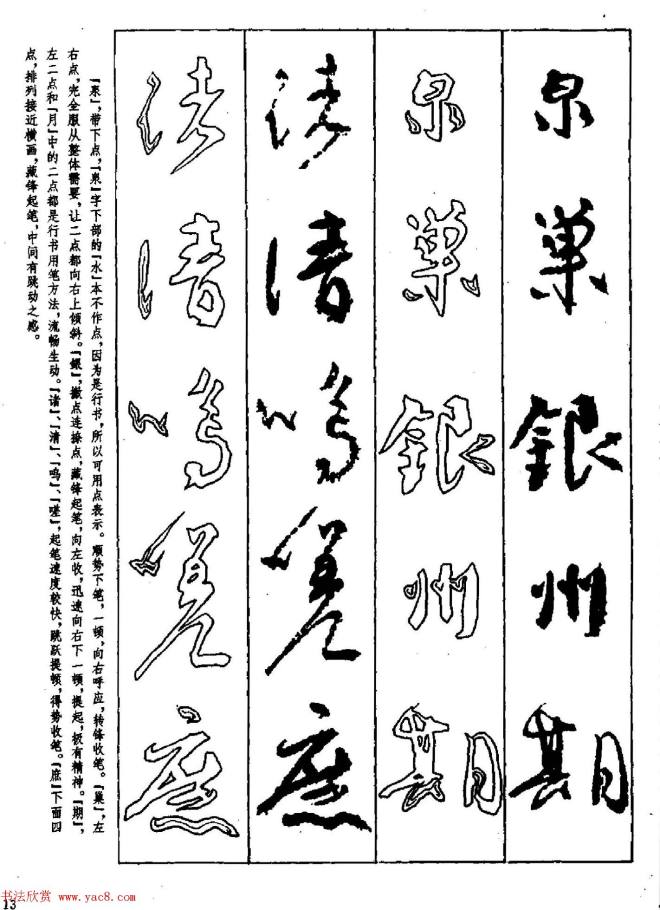 泉
巢
銀
州
期
诸
清
鸣
嗟
庶
「泉」，带下点，「泉」字下部的「水」本不作点，因为是行书，所以可用点表示。顺势下笔，一顿，向右呼应，转锋收笔。「巢」，左
右点，完全服从整体需要，让二点都向右上倾斜。「銀」，撇点连捺点，藏锋起笔，向左收，迅速向右下一顿，提起，极有精神。「期」，
左二点和「月」中的二点都是行书用笔方法，流畅生动。「诸」、「清」、「鸣」、「嗟」，起笔速度较快，跳跃提顿，得势收笔。「庶」下面四
点，排列接近横画，藏锋起笔，中间有跳动之感。
书法欣赏 www.yac8.com
13